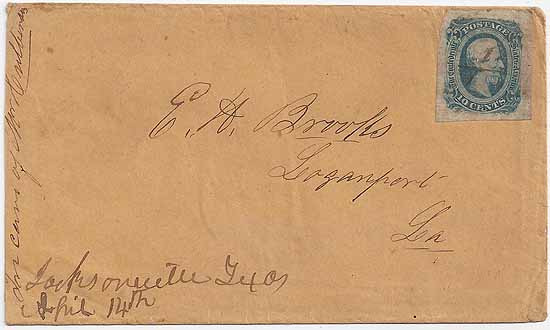 POSTAGE
The Confederate States of America
10 CENTS
E. H. Brooks
Loganport
La
Jacksonville Texas
April 14th
In care of Mr